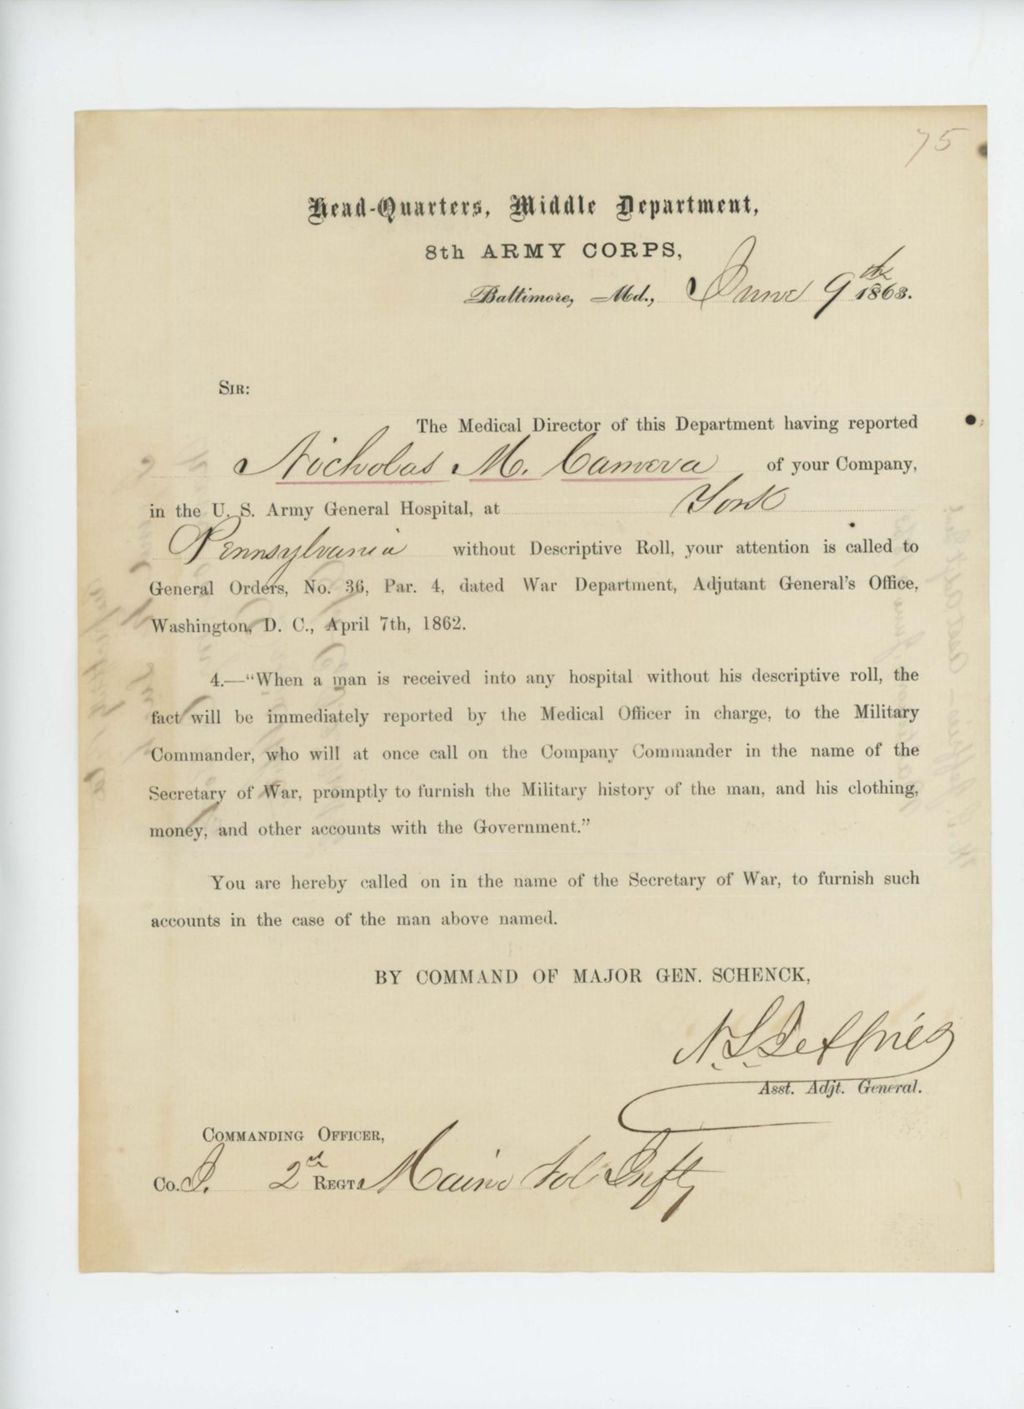 75
Head-Quarters, Middle Department,
8th ARMY CORPS,
Baltimore, Md., June 9th 1863.
SIR:
The Medical Director of this Department having reported
Nicholas M. Camera of your Company,
in the U. S. Army General Hospital, at York
Pennsylvania without Descriptive Roll, your attention is called to
General Orders, No. 36, Par. 4, dated War Department, Adjutant General's Office,
Washington, D. C., April 7th, 1862.
4.—“When a man is received into any hospital without his descriptive roll, the
fact will be immediately reported by the Medical Officer in charge, to the Military
Commander, who will at once call on the Company Commander in the name of the
Secretary of War, promptly to furnish the Military history of the man, and his clothing,
money, and other accounts with the Government.”
You are hereby called on in the name of the Secretary of War, to furnish such
accounts in the case of the man above named.
BY COMMAND OF MAJOR GEN. SCHENCK,
N. L. Jeffries
Asst. Adjt. General.
COMMANDING OFFICER,
Co. I. 2d REGT. Maine Vol Infty